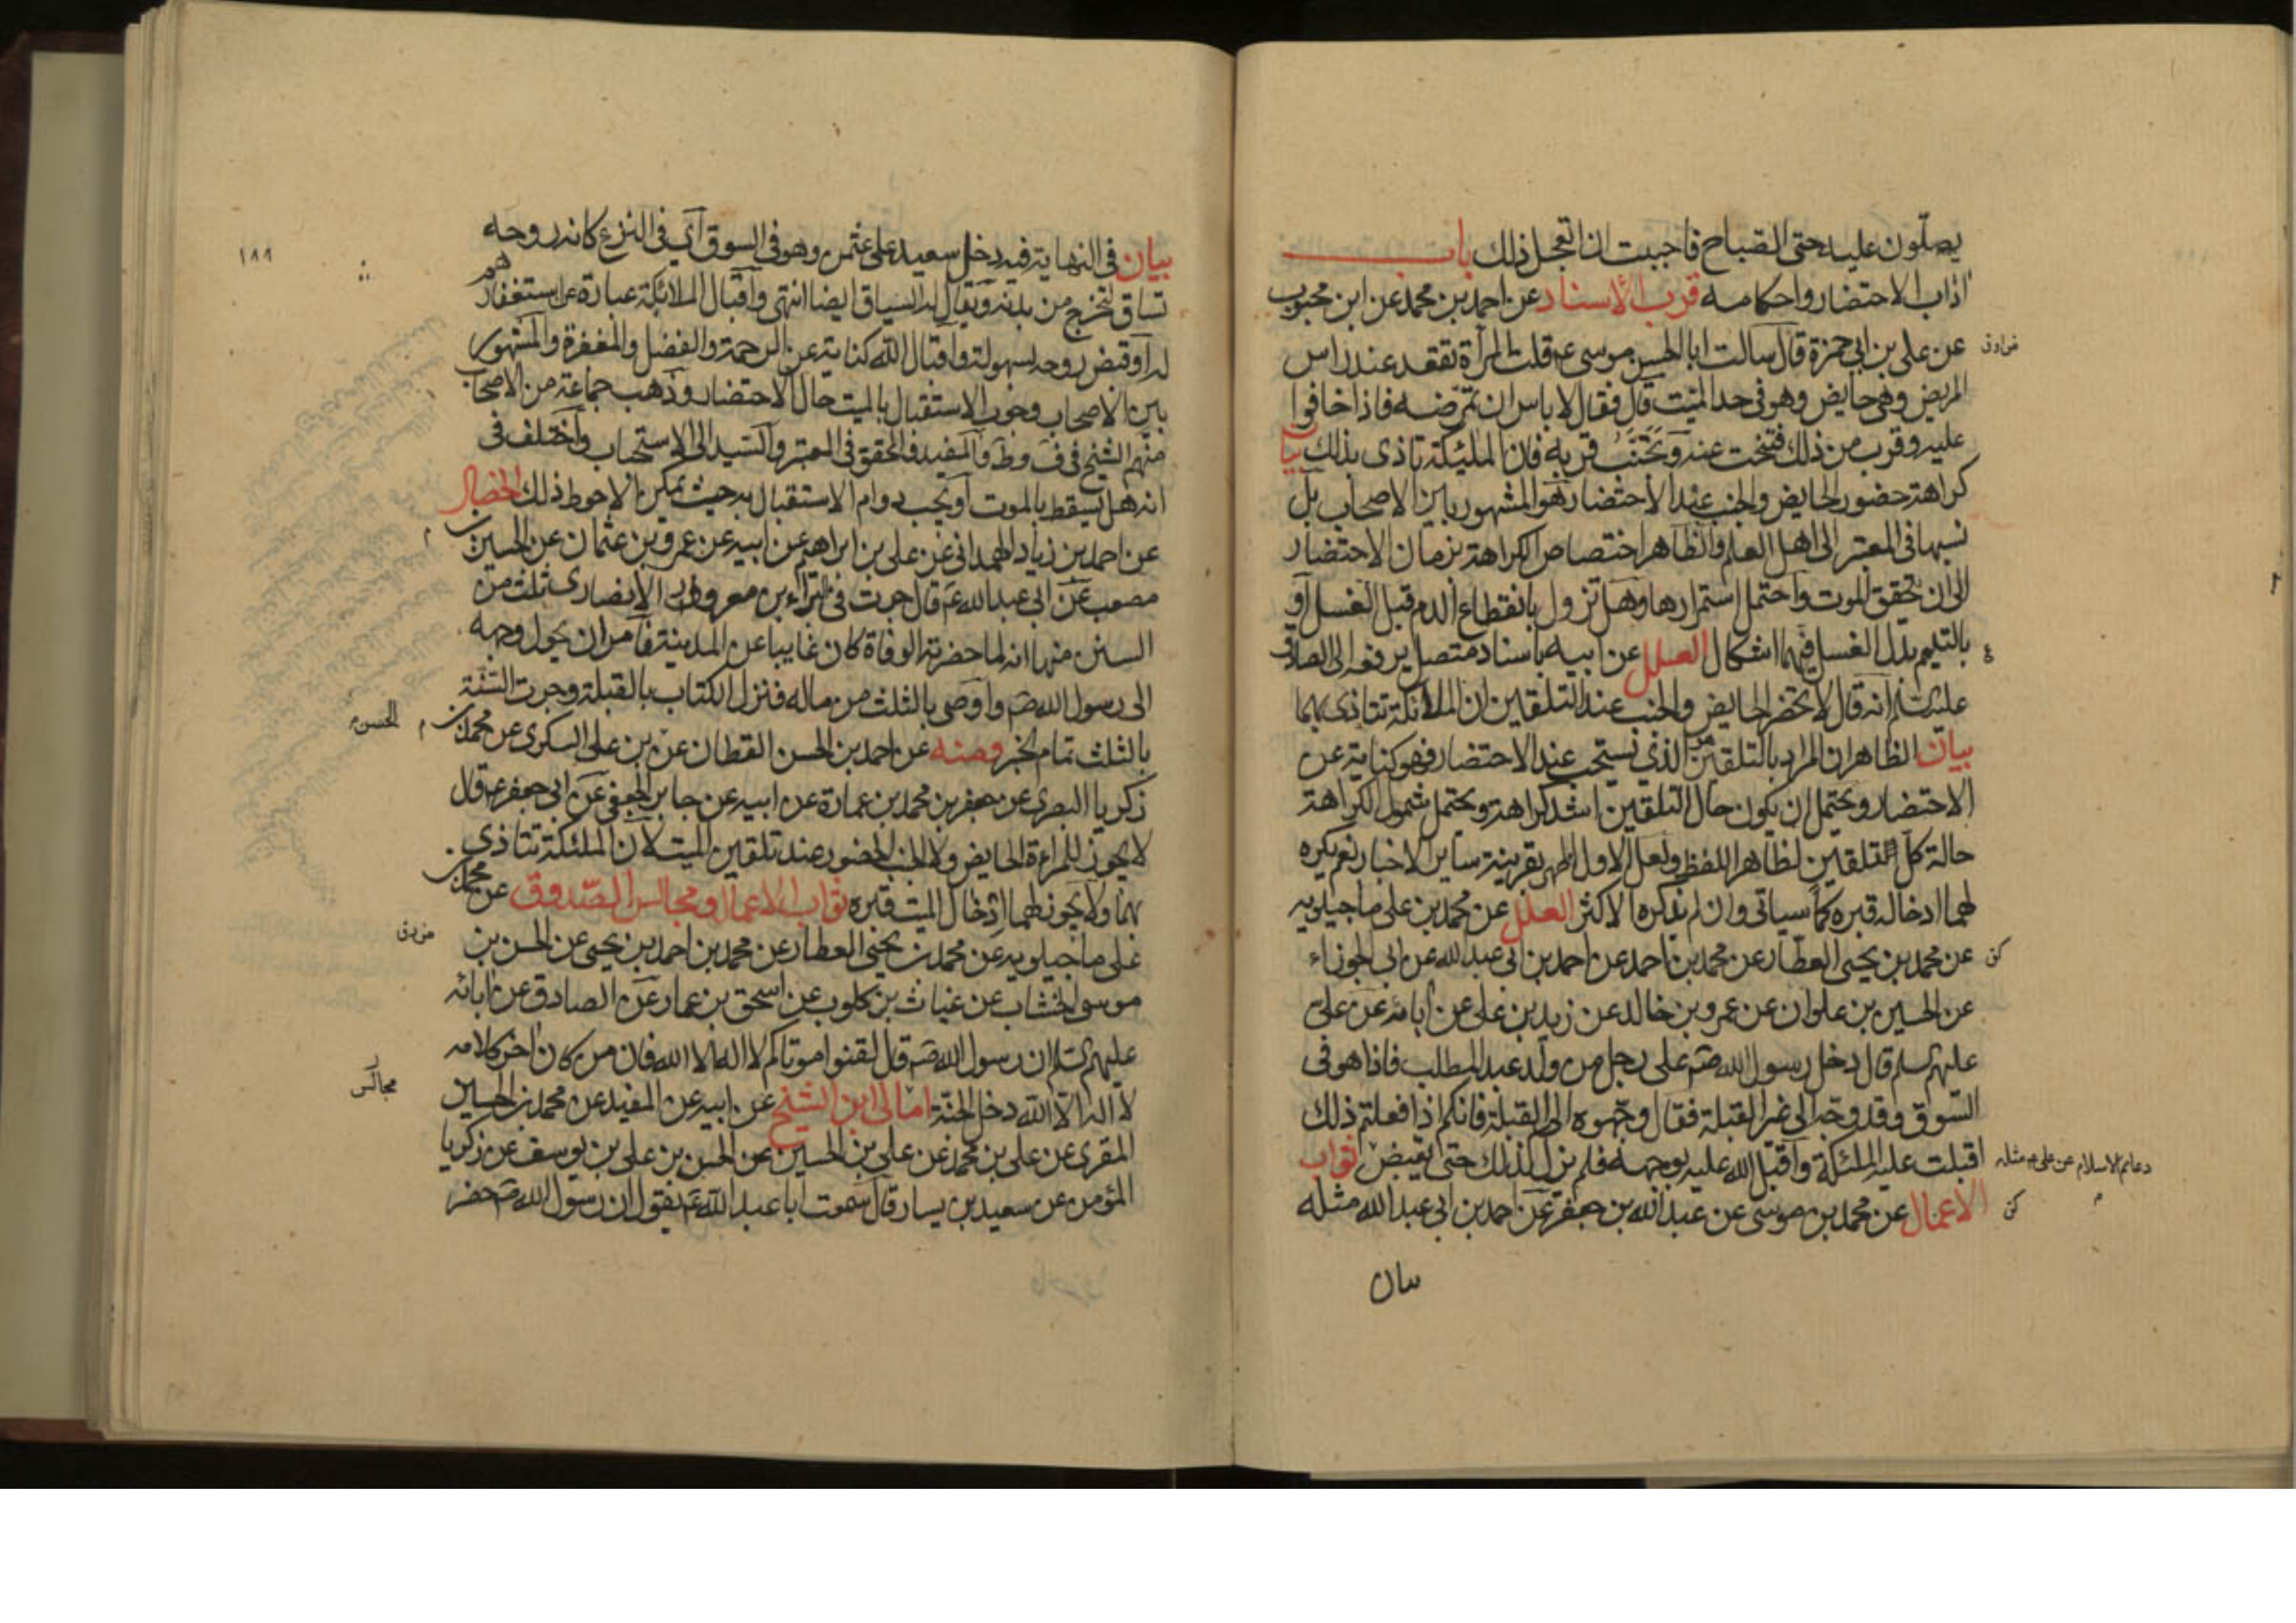 يصلون عليه حتى الصباح فاجبت ان اتعجل ذلك باب
اداب الاحتضار واحكامه قرب الاسناد عن احمد بن محمد عن ابن محبوب
عن علي بن ابي حمزة قال سالت ابا الحسن موسى ع قلت المرأة تقعد عند راس
المريض وهي حايض وهو في حد الميت قال فقال لا باس ان تمرضه فاذا خافوا
عليه وقرب من ذلك فتنحت عنه وتجنب قربه فان الملئكة تاذى بذلك بيا
كراهة حضور الحايض والجنب عند الاحتضار هو المشهور بين الاصحاب بل
نسبها في المعتبر الى اهل العلم والظاهر اختصاص الكراهة بزمان الاحتضار
الى ان يتحقق الموت واحتمل استمرارها وهل تزول بانقطاع الدم قبل الغسل او
بالتيمم بدل الغسل فيهما اشكال العلل عن ابيه باسناد متصل يرفعه الى الصادق
عليه السلام انه قال لا تحضر الحايض والجنب عند التلقين ان الملائكة تتاذى بهما
بيان الظاهر ان المراد بالتلقين الذي يستحب عند الاحتضار فهو كناية عن
الاحتضار ويحتمل ان يكون حال التلقين اشد كراهة ويحتمل شمول الكراهة
حالة كل تلقين لظاهر اللفظ ولعل الاول اظهر بقرينة ساير الاخبار نعم يكره
لهما ادخاله قبره كما سياتي وان لم يذكره الاكثر العلل عن محمد بن علي ماجيلويه
عن محمد بن يحيى العطار عن محمد بن احمد عن احمد بن ابي عبد الله عن ابي الجوزاء
عن الحسين بن علوان عن عمرو بن خالد عن زيد بن علي عن ابائه عن علي
عليهم السلم قال دخل رسول الله ص على رجل من ولد عبد المطلب فاذا هو في
السوق وقد وجه الى غير القبلة فقال وجهوه الى القبلة فانكم اذا فعلتم ذلك
اقبلت عليه الملئكة واقبل الله عليه بوجهه فلم يزل كذلك حتى يقبض ثواب
دعائم الاسلام عن علي ع مثله
الاعمال عن محمد بن موسى عن عبد الله بن جعفر عن احمد بن ابي عبد الله مثله
بيان
١٨٩
بيان في النهاية فيه دخل سعيد على عثمن وهو في السوق اي في النزع كانه روحه
تساق لتخرج من بدنه ويقال له السياق ايضا انتهى واقبال الملائكة عبارة عن استغفارهم
له او قبض روحه بسهولة واقبال الله كناية عن الرحمة والفضل والمغفرة والمشهور
بين الاصحاب وجوب الاستقبال بالميت حال الاحتضار وذهب جماعة من الاصحاب
منهم الشيخ في ف وظ والمفيد والمحقق في المعتبر والسيد الى الاستحباب واختلف في
انه هل يسقط بالموت او يجب دوام الاستقبال به حيث يمكن الاحوط ذلك الخصال
عن احمد بن زياد الهمداني عن علي بن ابراهيم عن ابيه عن عمرو بن عثمان عن الحسين بن
مصعب عن ابي عبد الله ع قال جرت في البراء بن معرور الانصاري ثلث من
السنن منها انه لما حضرته الوفاة كان غايبا عن المدينة فامر ان يحول وجهه
الى رسول الله ص واوصى بالثلث من ماله فنزل الكتاب بالقبلة وجرت السنة
بالثلث تمام الخبر ومنه عن احمد بن الحسن القطان عن بن علي السكري عن محمد بن
الحسن
زكريا البصري عن جعفر بن محمد بن عمارة عن ابيه عن جابر الجعفي عن ابي جعفر ع قال
لا يجوز للمراءة الحايض ولا الجنب الحضور عند تلقين الميت لان الملئكة تتاذى
بهما ولا يجوز لهما ادخال الميت قبره ثواب الاعمال ومجالس الصدوق عن محمد بن
علي ماجيلويه عن محمد بن يحيى العطار عن محمد بن احمد بن يحيى عن الحسن بن
موسى الخشاب عن غياث بن كلوب عن اسحق بن عمار عن الصادق عن ابائه
عليهم السلم ان رسول الله ص قال لقنوا موتاكم لا اله الا الله فان من كان اخر كلامه
لا اله الا الله دخل الجنة امالي ابن الشيخ عن ابيه عن المفيد عن محمد بن الحسين
مجالس
المقري عن علي بن محمد عن علي بن الحسين عن الحسن بن علي بن يوسف عن زكريا
المؤمن عن سعيد بن يسار قال سمعت ابا عبد الله ع يقول ان رسول الله ص حضر